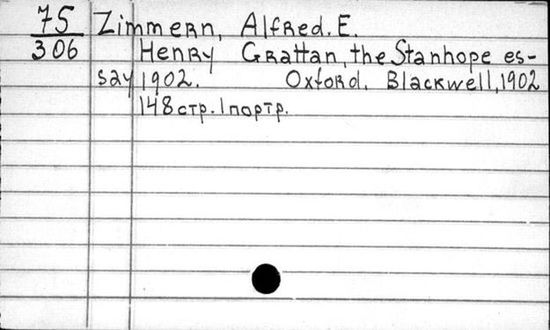 75 Zimmern, Alfred. E.
306 Henry Grattan, the Stanhope es-
say 1902. Oxford, Blackwell, 1902
148 стр. 1 портр.